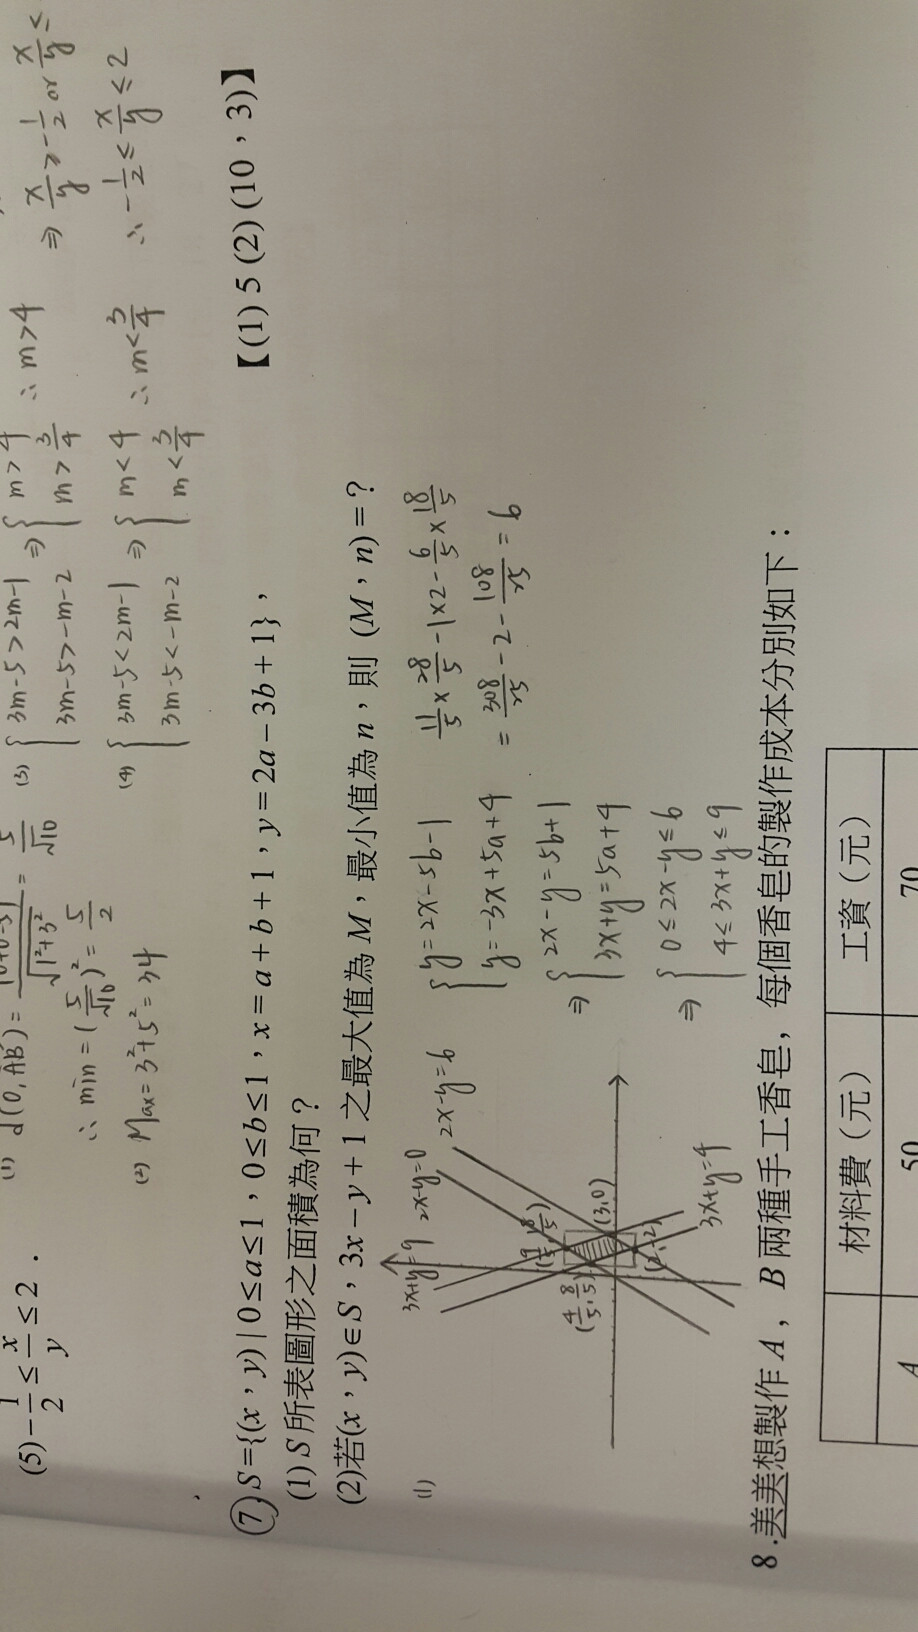 (5) -1/2 ≤ x/y ≤ 2 .
(1) d(O, AB) = |0+0-5|/√(1²+3²) = 5/√10
∴ min = (5/√10)² = 5/2
(2) Max = 3²+5² = 34
(3) { 3m-5>2m-1
3m-5>-m-2 ⇒ { m>4
m>3/4 ∴ m>4
(4) { 3m-5<2m-1
3m-5<-m-2 ⇒ { m<4
m<3/4 ∴ m<3/4
⇒ x/y ≥ -1/2 or x/y ≤
∴ -1/2 ≤ x/y ≤ 2
7. S={(x，y)|0≤a≤1，0≤b≤1，x=a+b+1，y=2a-3b+1}，
(1) S 所表圖形之面積為何？
(2)若(x，y)∈S，3x-y+1之最大值為M，最小值為n，則 (M，n)=？
【(1) 5 (2) (10，3)】
(1)
3x+y=9 2x-y=0
2x-y=6
(9/5, 18/5)
(4/5, 8/5)
(3,0)
(2,-2)
3x+y=4
{ y=2x-5b-1
y=-3x+5a+4
⇒ { 2x-y=5b+1
3x+y=5a+4
⇒ { 0≤2x-y≤6
4≤3x+y≤9
11/5 × 28/5 - 1×2 - 6/5 × 18/5
= 308/25 - 2 - 108/25 = 6
8 .美美想製作 A，B 兩種手工香皂，每個香皂的製作成本分別如下：
材料費（元） 工資（元）
A 50 70